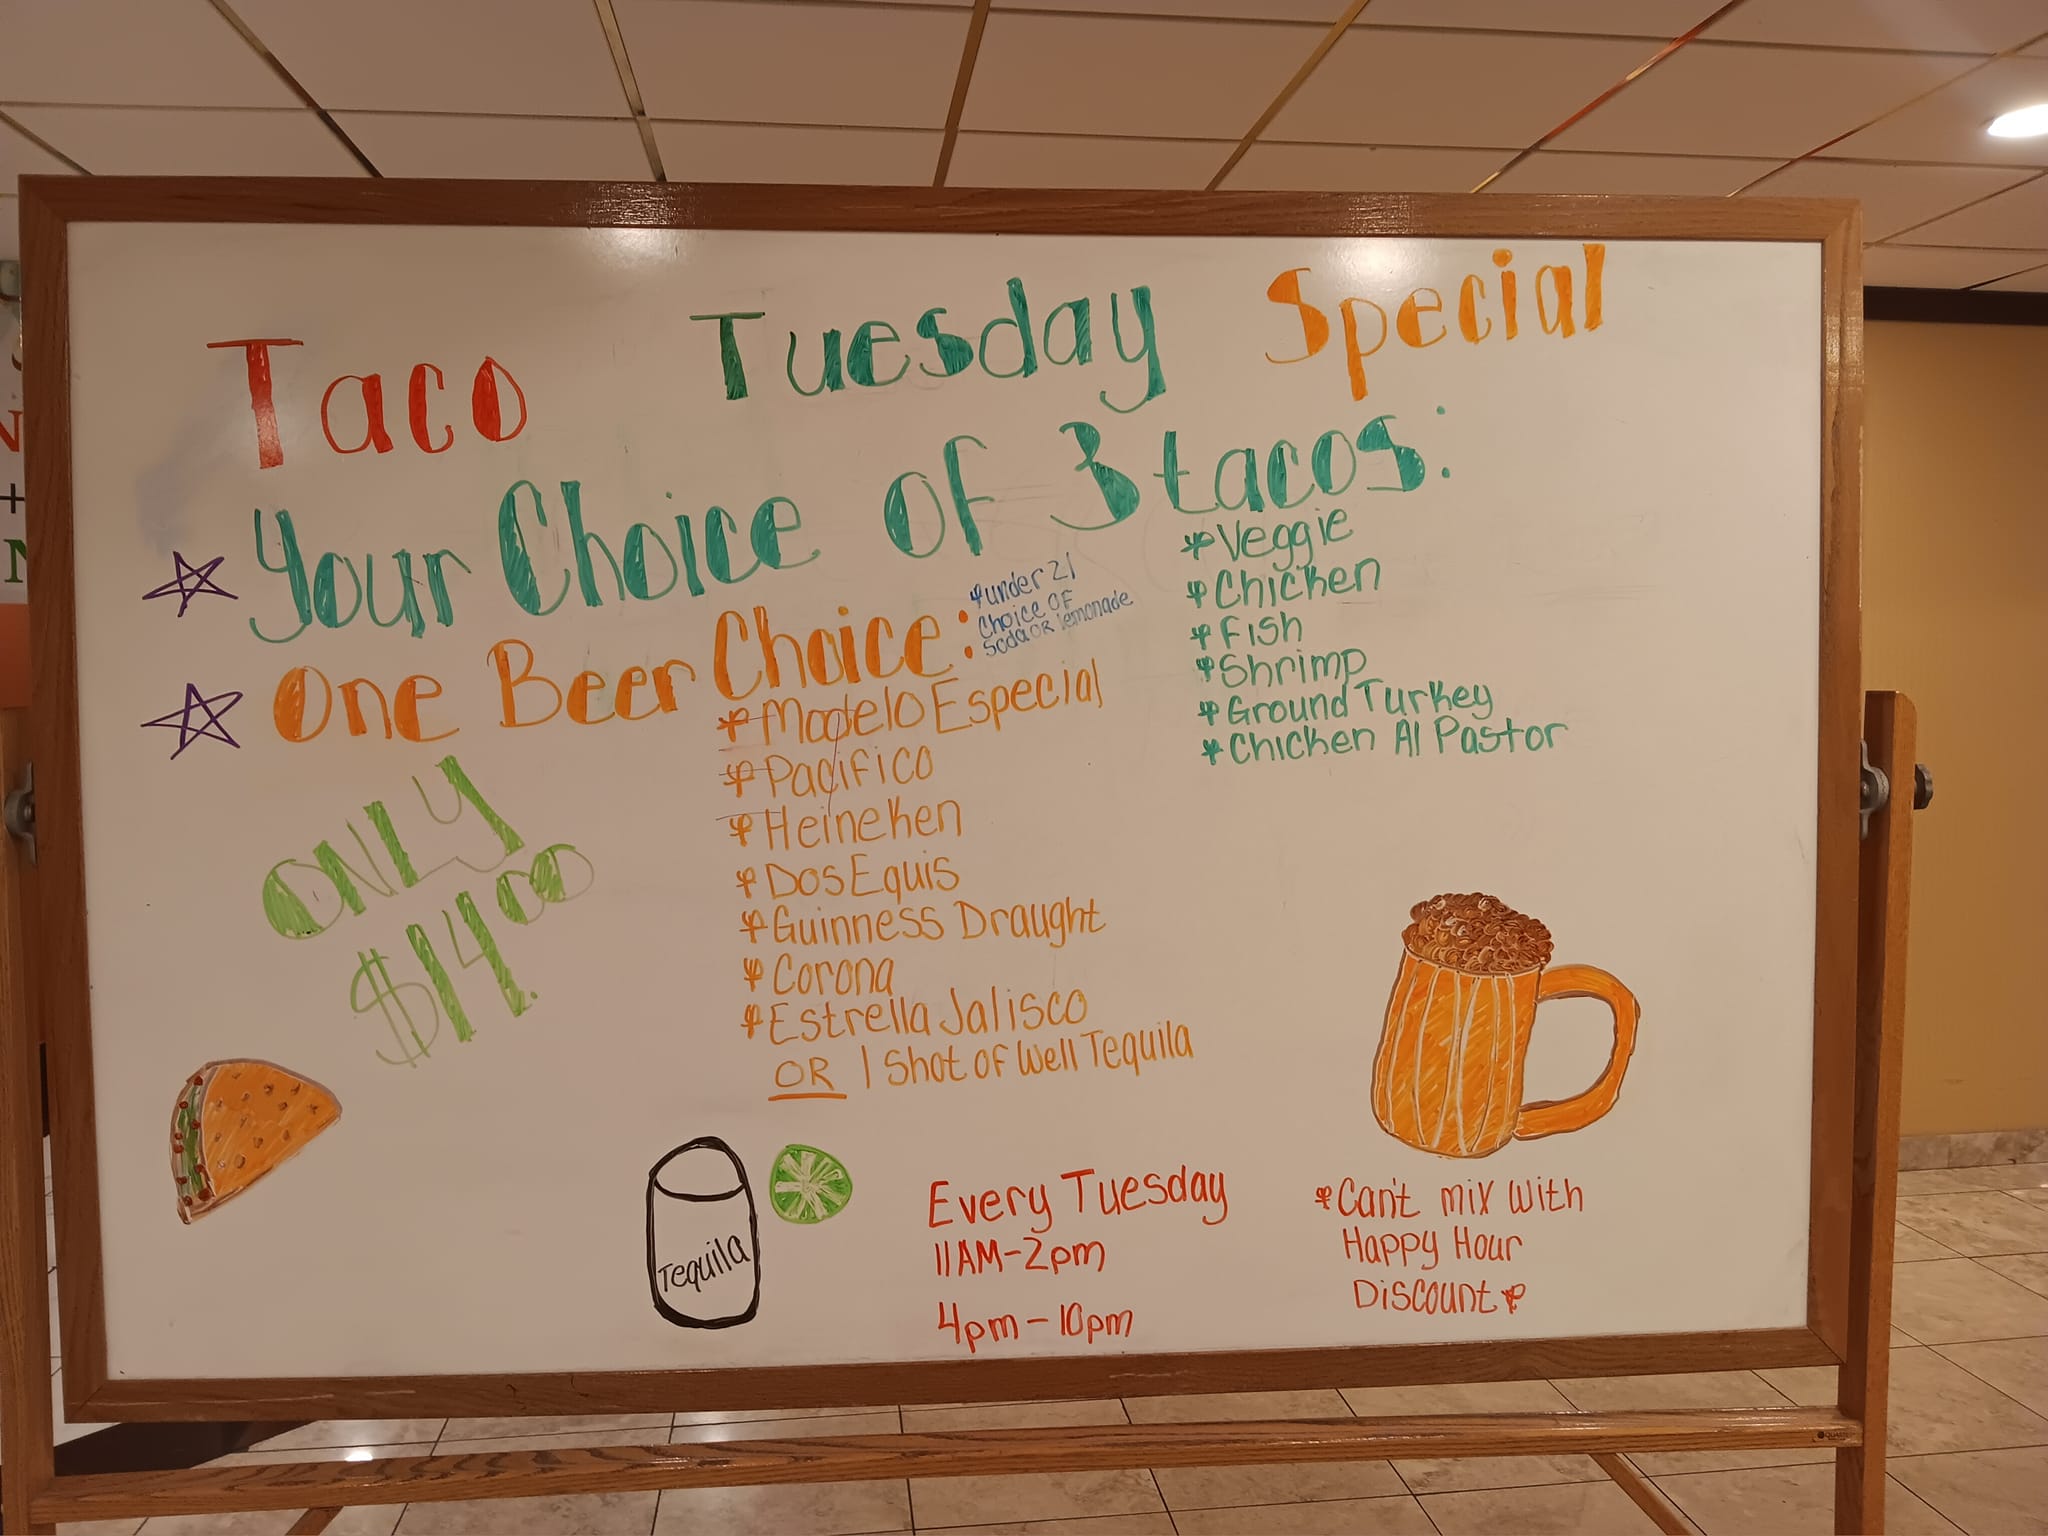 Taco Tuesday Special
Your Choice of 3 tacos:
*Veggie
*Chicken
*Fish
*Shrimp
*Ground Turkey
*Chicken Al Pastor
One Beer Choice:
*under 21
Choice OF
Soda OR lemonade
*Modelo Especial
*Pacifico
*Heineken
*Dos Equis
*Guinness Draught
*Corona
*Estrella Jalisco
OR 1 Shot of Well Tequila
ONLY
$14.00
Tequila
Every Tuesday
11AM-2pm
4pm-10pm
*Can't mix with
Happy Hour
Discount*
QUARTET